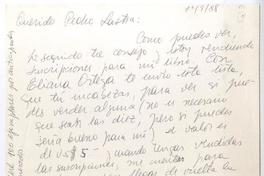 1º/9/88
Querido Pedro Lastra:
Como puedes ver,
he seguido tu consejo y estoy vendiendo
suscripciones para mi libro. Con
Eliana Ortega te envío esta lista,
que tú encabezas, para ver si pue-
des vender alguna (no es necesario
que seas los diez, pero si puedes
sería bueno para mí) el valor es
de US$5 — cuando tengas vendidas
las suscripciones, me
de vuelta la
ejemplares por